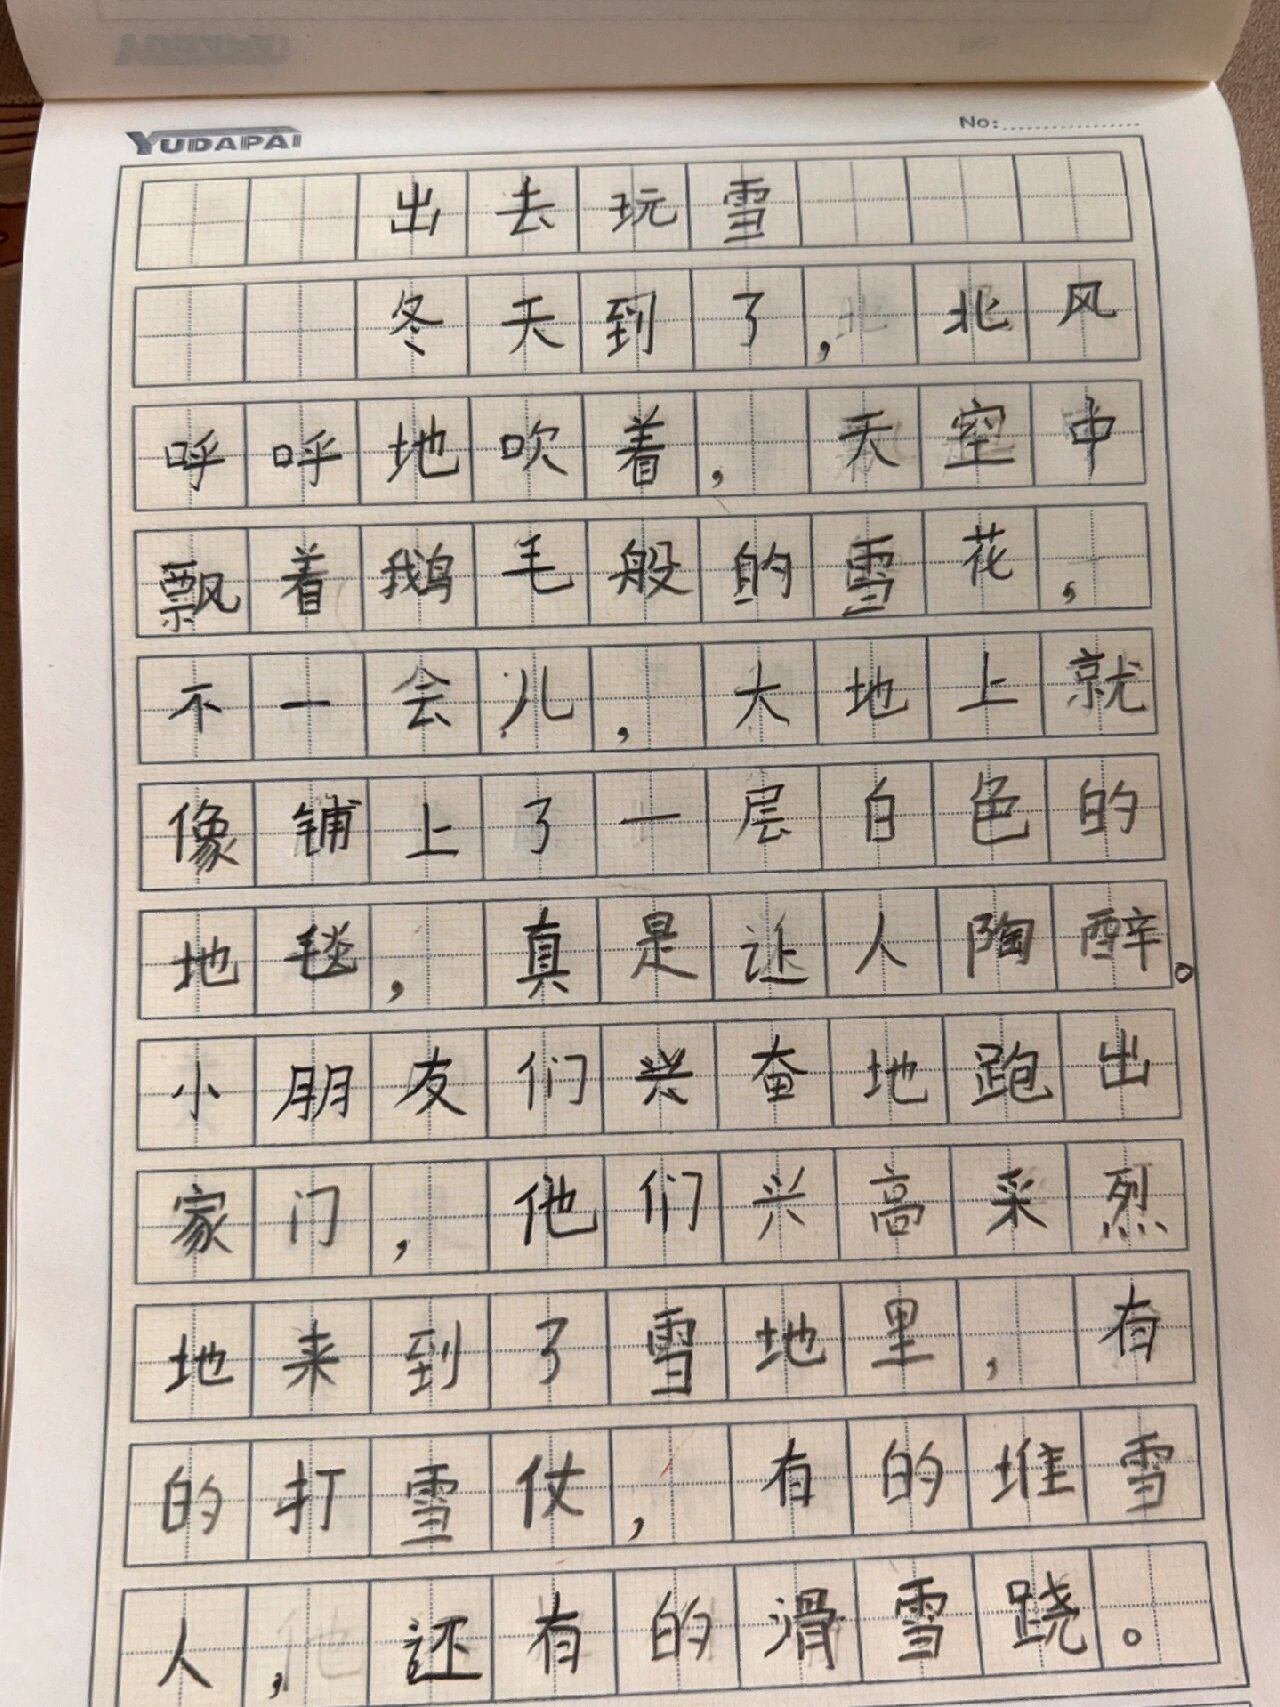 YUDAPAI
No:
出去玩雪
冬天到了,北风
呼呼地吹着,天空中
飘着鹅毛般的雪花,
不一会儿,大地上就
像铺上了一层白色的
地毯,真是让人陶醉。
小朋友们兴奋地跑出
家门,他们兴高采烈
地来到了雪地里,有
的打雪仗,有的堆雪
人,还有的滑雪跷。